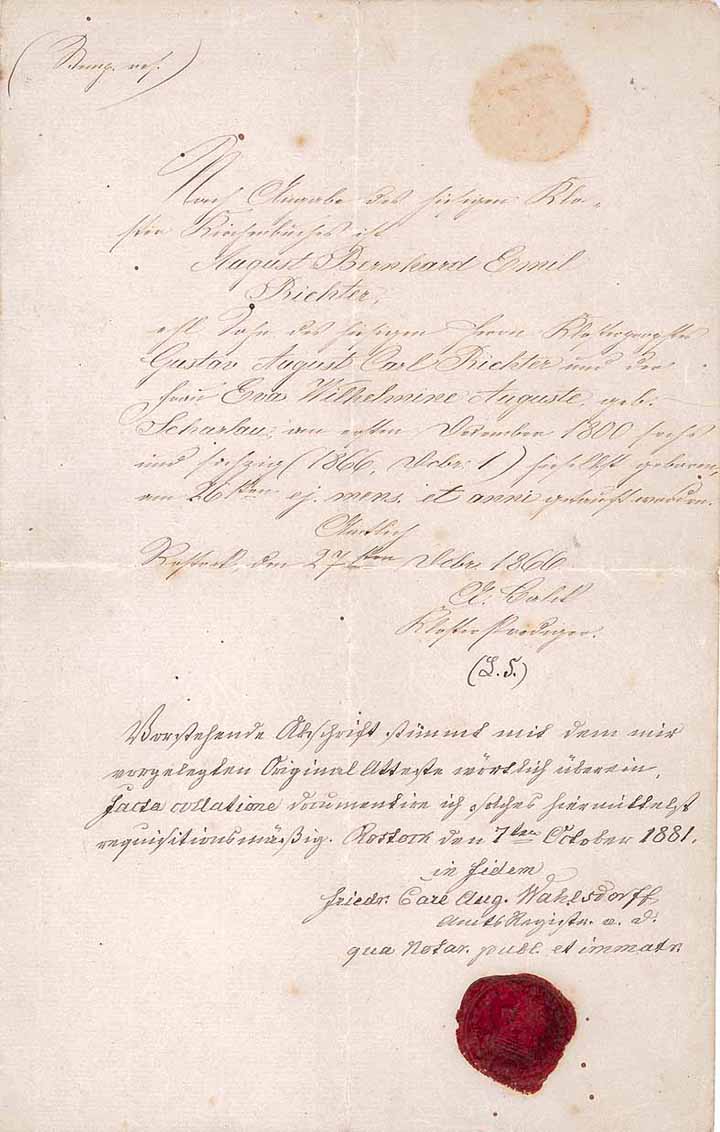 (Stemp. ref.)
Nach Angabe des hiesigen Klo-
ster Kirchenbuches ist
August Bernhard Emil
Richter,
ehl. Sohn des hiesigen Herrn
Gustav August Carl Richter und der
Frau Eva Wilhelmine Auguste, geb.
Scharlau, am ersten December 1800 sechs
und sechzig (1866, Decbr. 1) hieselbst geboren,
am 26sten ej. mens. et anni getauft worden.
Amtlich
Rostock, den 27sten Decbr. 1866
Klosterprediger.
(L. S.)
Vorstehende Abschrift stimmt mit dem mir
vorgelegten Original Atteste wörtlich überein,
facta collatione documentire ich solches hiermittelst
requisitionsmäßig. Rostock den 7ten October 1881.
in fidem
Friedr. Carl Aug. Wahlsdorff
Amts Registr. a. d.
qua Notar. publ. et immatr.